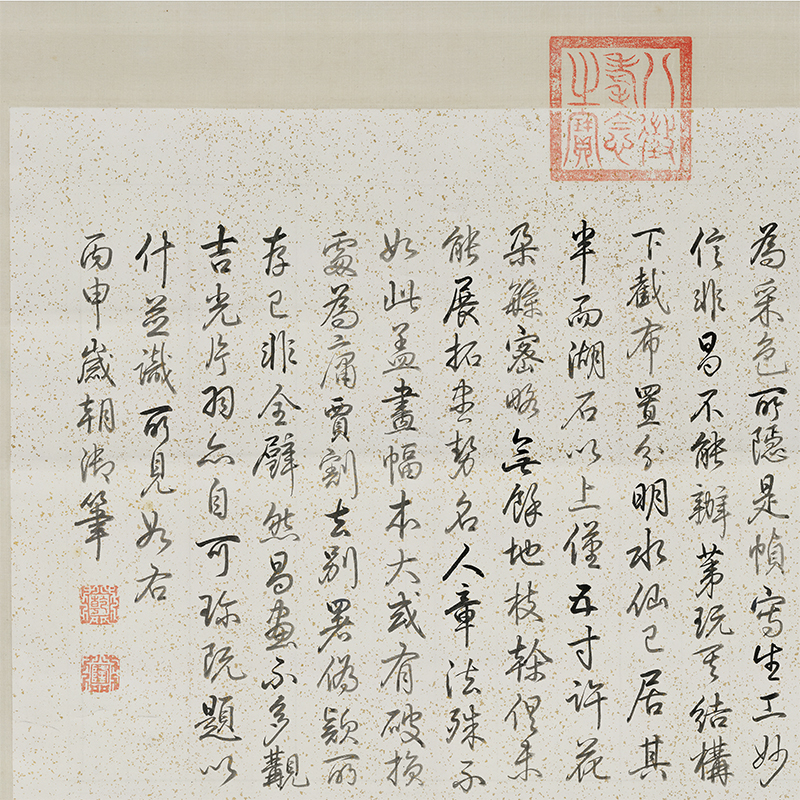 八徵耄念之寶
為采色所隱是幀寫生工妙
信非昌不能辦第玩其結構
下截布置分明水仙已居其
半而湖石以上僅五寸許花
朵緐密略無餘地枝幹俱未
能展拓盡勢名人章法殊不
如此蓋畫幅本大或有破損
處為庸賈割去別署偽款所
存已非全璧然昌畫不多覯
吉光片羽亦自可珍既題以
什並識所見如右
丙申歲朝御筆